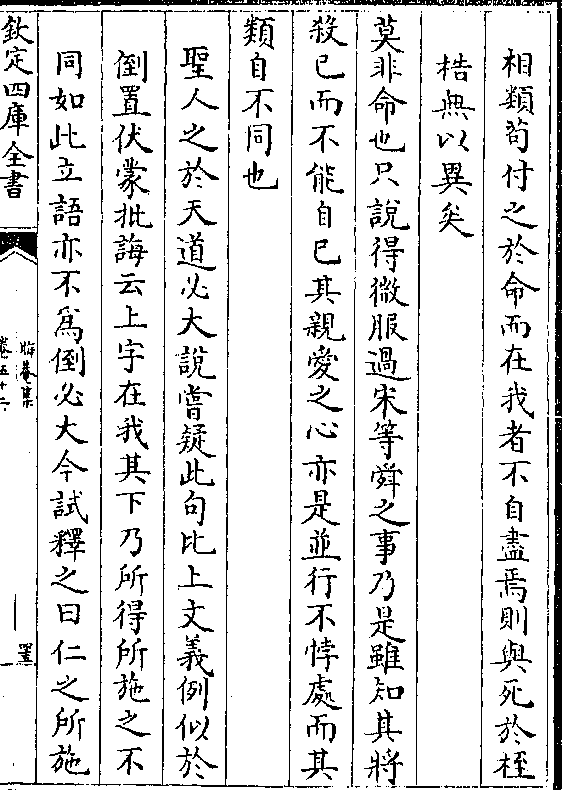 相類茍付之於命而在我者不自盡焉則與死於桎
梏無以異矣
莫非命也只說得微服過宋等舜之事乃是雖知其將
殺已而不能自已其親愛之心亦是並行不悖處而其
類自不同也
聖人之於天道必大說嘗疑此句比上文義例似於
倒置伏蒙批誨云上字在我其下乃所得所施之不
同如此立語亦不為倒必大今試釋之曰仁之所施
欽定四庫全書
晦菴集
卷五十二